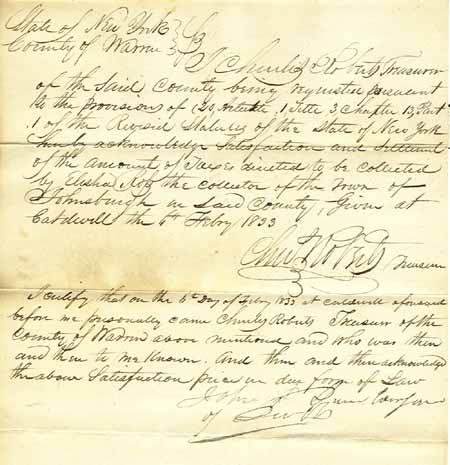 State of New York
County of Warren } SS
I Charles Roberts Treasurer
of the Said County being requested pursuant
to the provisions of Article 1 Title 3 Chapter 13, Part
1 of the Revised Statutes of the State of New York
hereby acknowledge Satisfaction and Settlement
of the amount of Taxes directed to be collected
by Elisha the collector of the Town of
Johnsburgh in Said County, Given at
Caldwell the 6th Febry 1833
Chas Roberts Treasurer
I certify that on the 6th Day of Febry 1833 at Caldwell aforesaid
before me personally came Charles Roberts Treasurer of the
County of Warren as mentioned and who was then
and there to me Known. And then and there acknowledged
the above Satisfaction piece in due form of Law
John
of